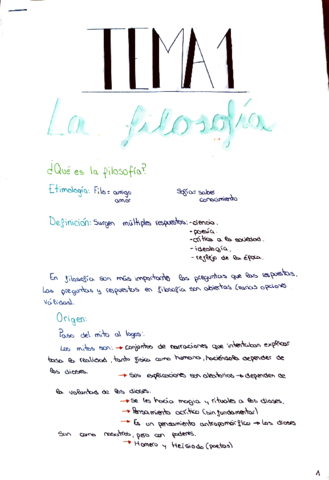 TEMA 1
La filosofía
¿Qué es la filosofía?
Etimología: Filo = amigo Sofía = saber
amor conocimiento
Definición: Surgen múltiples respuestas: -ciencia.
-poesía.
-crítica a la sociedad.
-ideología.
-reflejo de la época.
En filosofía son más importantes las preguntas que las respuestas.
Las preguntas y respuestas en filosofía son abiertas (varias opciones
válidas).
Origen:
Paso del mito al logos:
Los mitos son: → conjuntos de narraciones que intentaban explicar
toda la realidad, tanto física como humana, haciéndola depender de
los dioses.
→ Sus explicaciones son aleatorias → dependen de
la voluntad de los dioses.
→ Se les hacía magia y rituales a los dioses.
→ Pensamiento acrítico (sin fundamentar)
→ Es un pensamiento antropomórfico → los dioses
son como nosotros, pero con poderes.
→ Homero y Hesíodo (poetas)
1